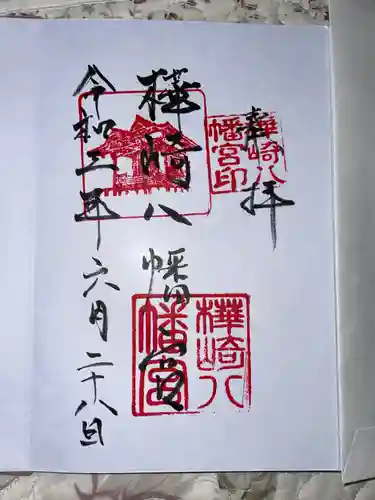 奉拝
樺崎八幡宮
令和三年六月二十八日
樺崎八幡宮印
樺崎八幡宮